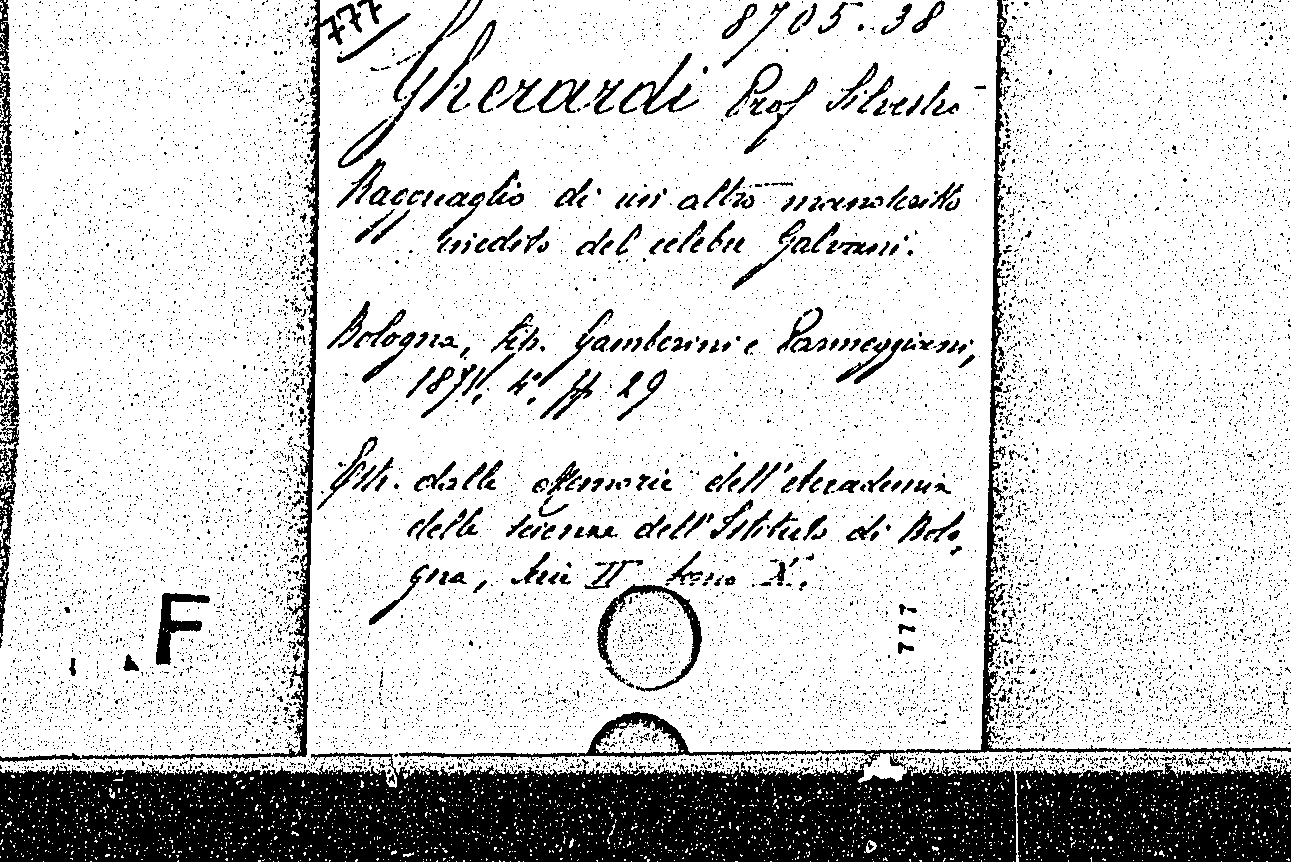 777
8705.38
Gherardi Prof Silvestro
Ragguaglio di un altro manoscritto
inedito del celebre Galvani.
Bologna, tip. Gamberini e Parmeggiani,
1871. 4° pp 29
Estr. dalle Memorie dell'Accademia
delle scienze dell'Istituto di Bolo,
gna, Serie II tomo X.
777
F